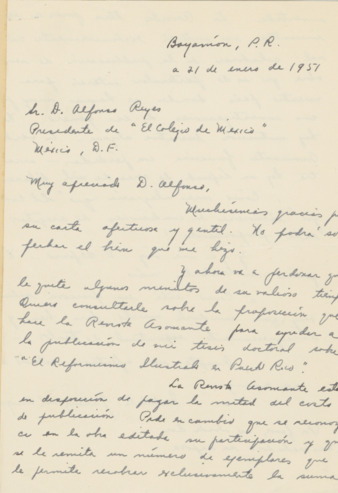 Bayamón, P.R.
a 21 de enero de 1951
Sr. D. Alfonso Reyes
Presidente de "El Colegio de México"
México, D.F.
Muy apreciado D. Alfonso,
Muchísimas gracias p
su carta afectuosa y gentil. No podrá so
pechar el bien que me hizo.
Y ahora va a perdonar qu
le quite algunos minutos de su valioso tiem
Quiero consultarle sobre la proposición que
hace la Revista Asomante para ayudar a
la publicación de mi tesis doctoral sobr
"El Reformismo Ilustrado en Puerto Rico".
La Revista Asomante est
en disposición de pagar la mitad del costo
de publicación Pide en cambio que se reconoz
ca en la obra editada su participación y qu
se le remita un número de ejemplares que
le permita recobrar exclusivamente la suma